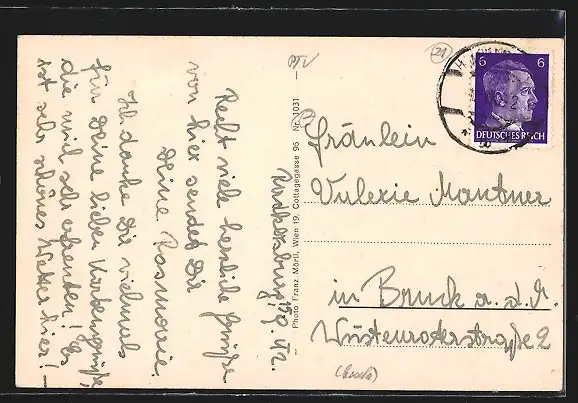 Radkersburg, 19.9.42.
Recht viele herzliche Grüße
von hier sendet Dir
Deine Rosmarie.
Ich danke Dir vielmals
für Deine lieben Kartengrüße,
die mich sehr erfreuten! Es
ist sehr schönes Wetter hier! –
Photo Franz Mörtl, Wien 19, Cottagegasse 95 Nr. 1031
21
6 6
DEUTSCHES REICH
Fräulein
Valerie Mantner
in Bruck a. d. M.
Wüstenroterstraße 2